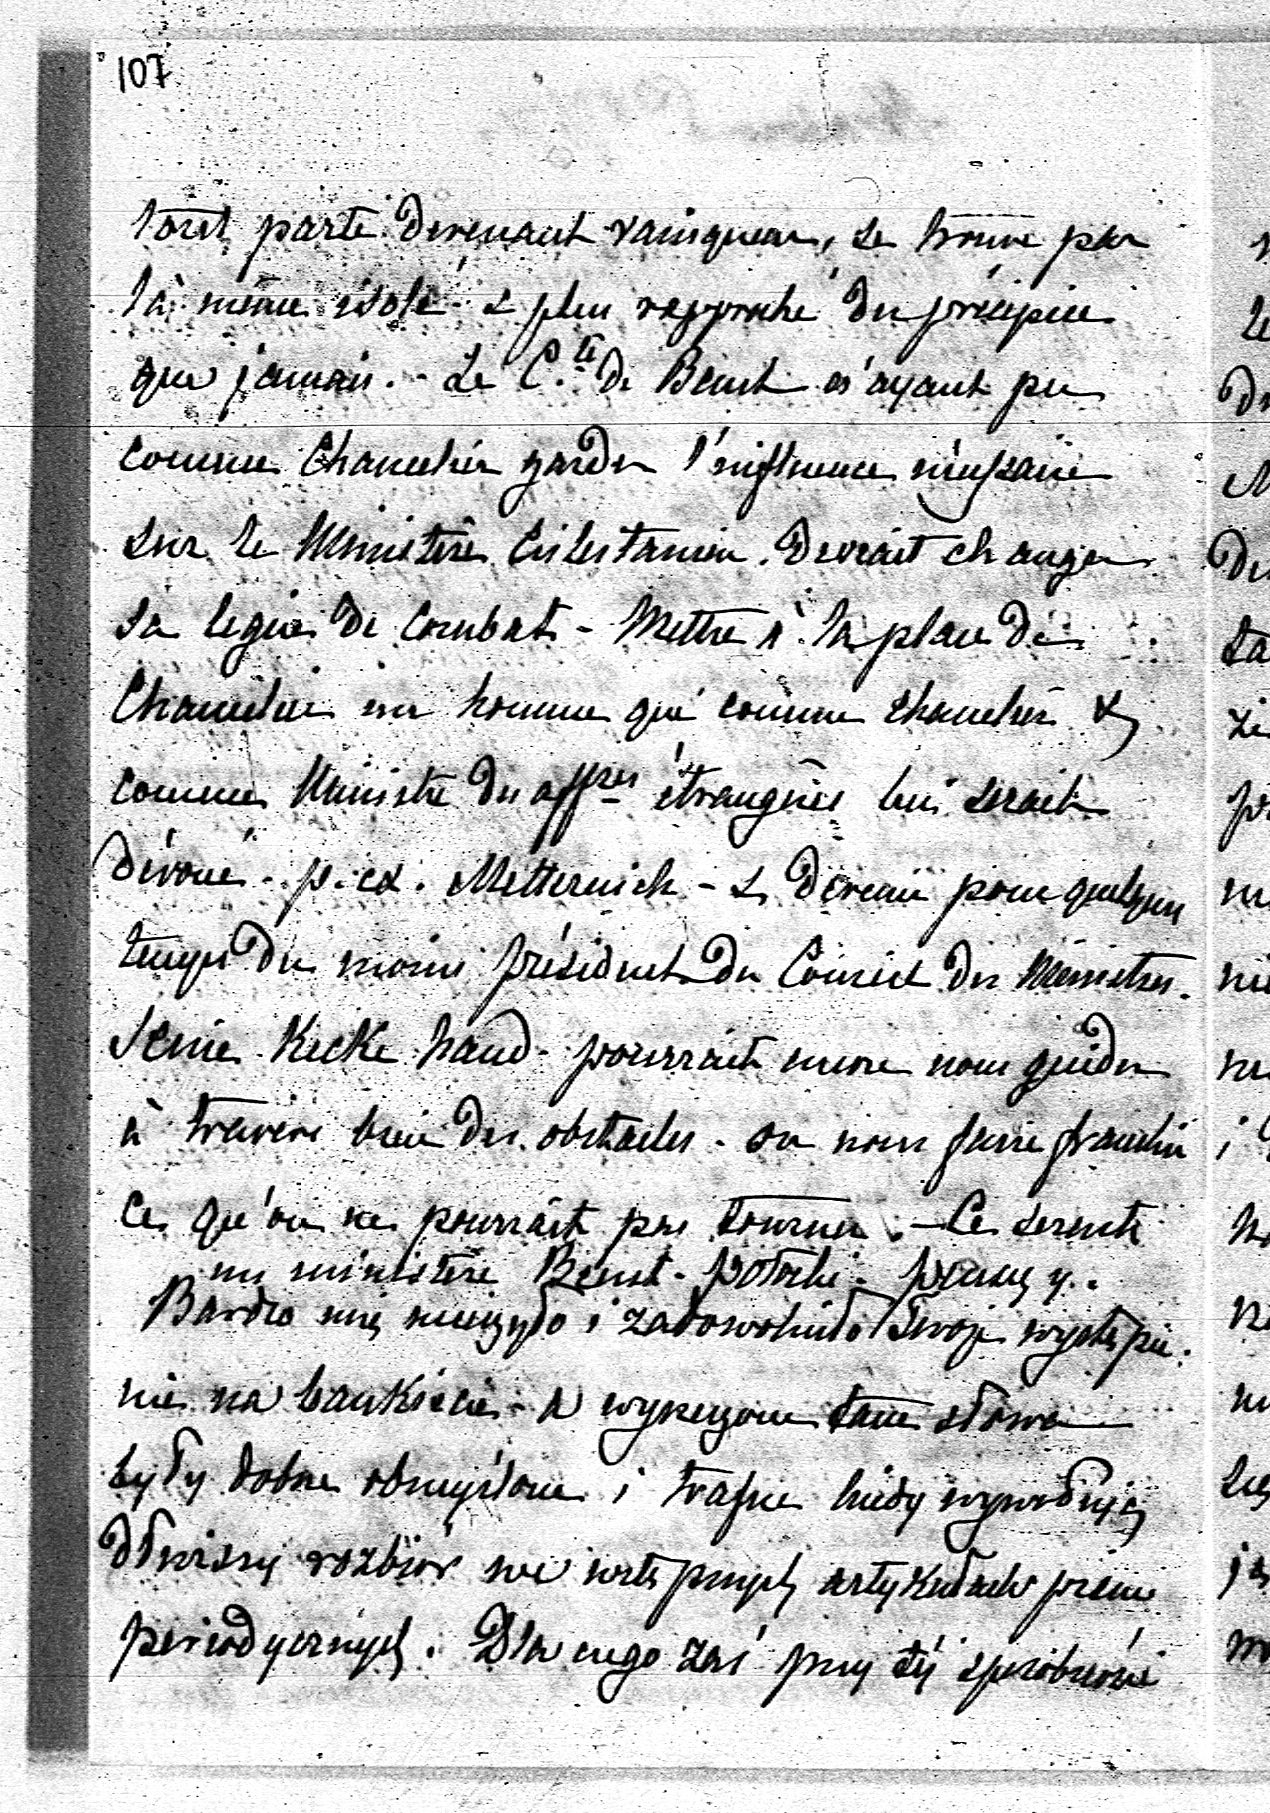 107
parti devenant vainqueur, se trouve par
là même isolé & plus rapproché du précipice
que jamais. - Le C.te de Beust n'ayant pu
comme Chancelier garder l'influence nécessaire
sur le Ministère Cisleitanien. Devrait changer
sa ligne de Combat - Mettre à la place de
Chancelier un homme qui comme chancelier &
comme Ministre des affres étrangères lui serait
dévoué - p. ex. Metternich - & devenir pour quelque
temps du moins président du Conseil des Ministres.
Seine Kecke hand - pourrait encore nous guider
à travers bien des obstacles - ou nous faire franchir
ce qu'on ne pourrait pas tourner. - Ce serait
un ministère Beust - Potocki -
Bardzo mię cieszyło i zadowolniło Twoje wystąpie-
nie na bankiecie - a wyrzeczone tam słowa
były dobrze obmyślone i trafne kiedy wywołują
dłuższy rozbiór we wstępnych artykułach pism
periodycznych. Dla czego zaś przy téj sposobności